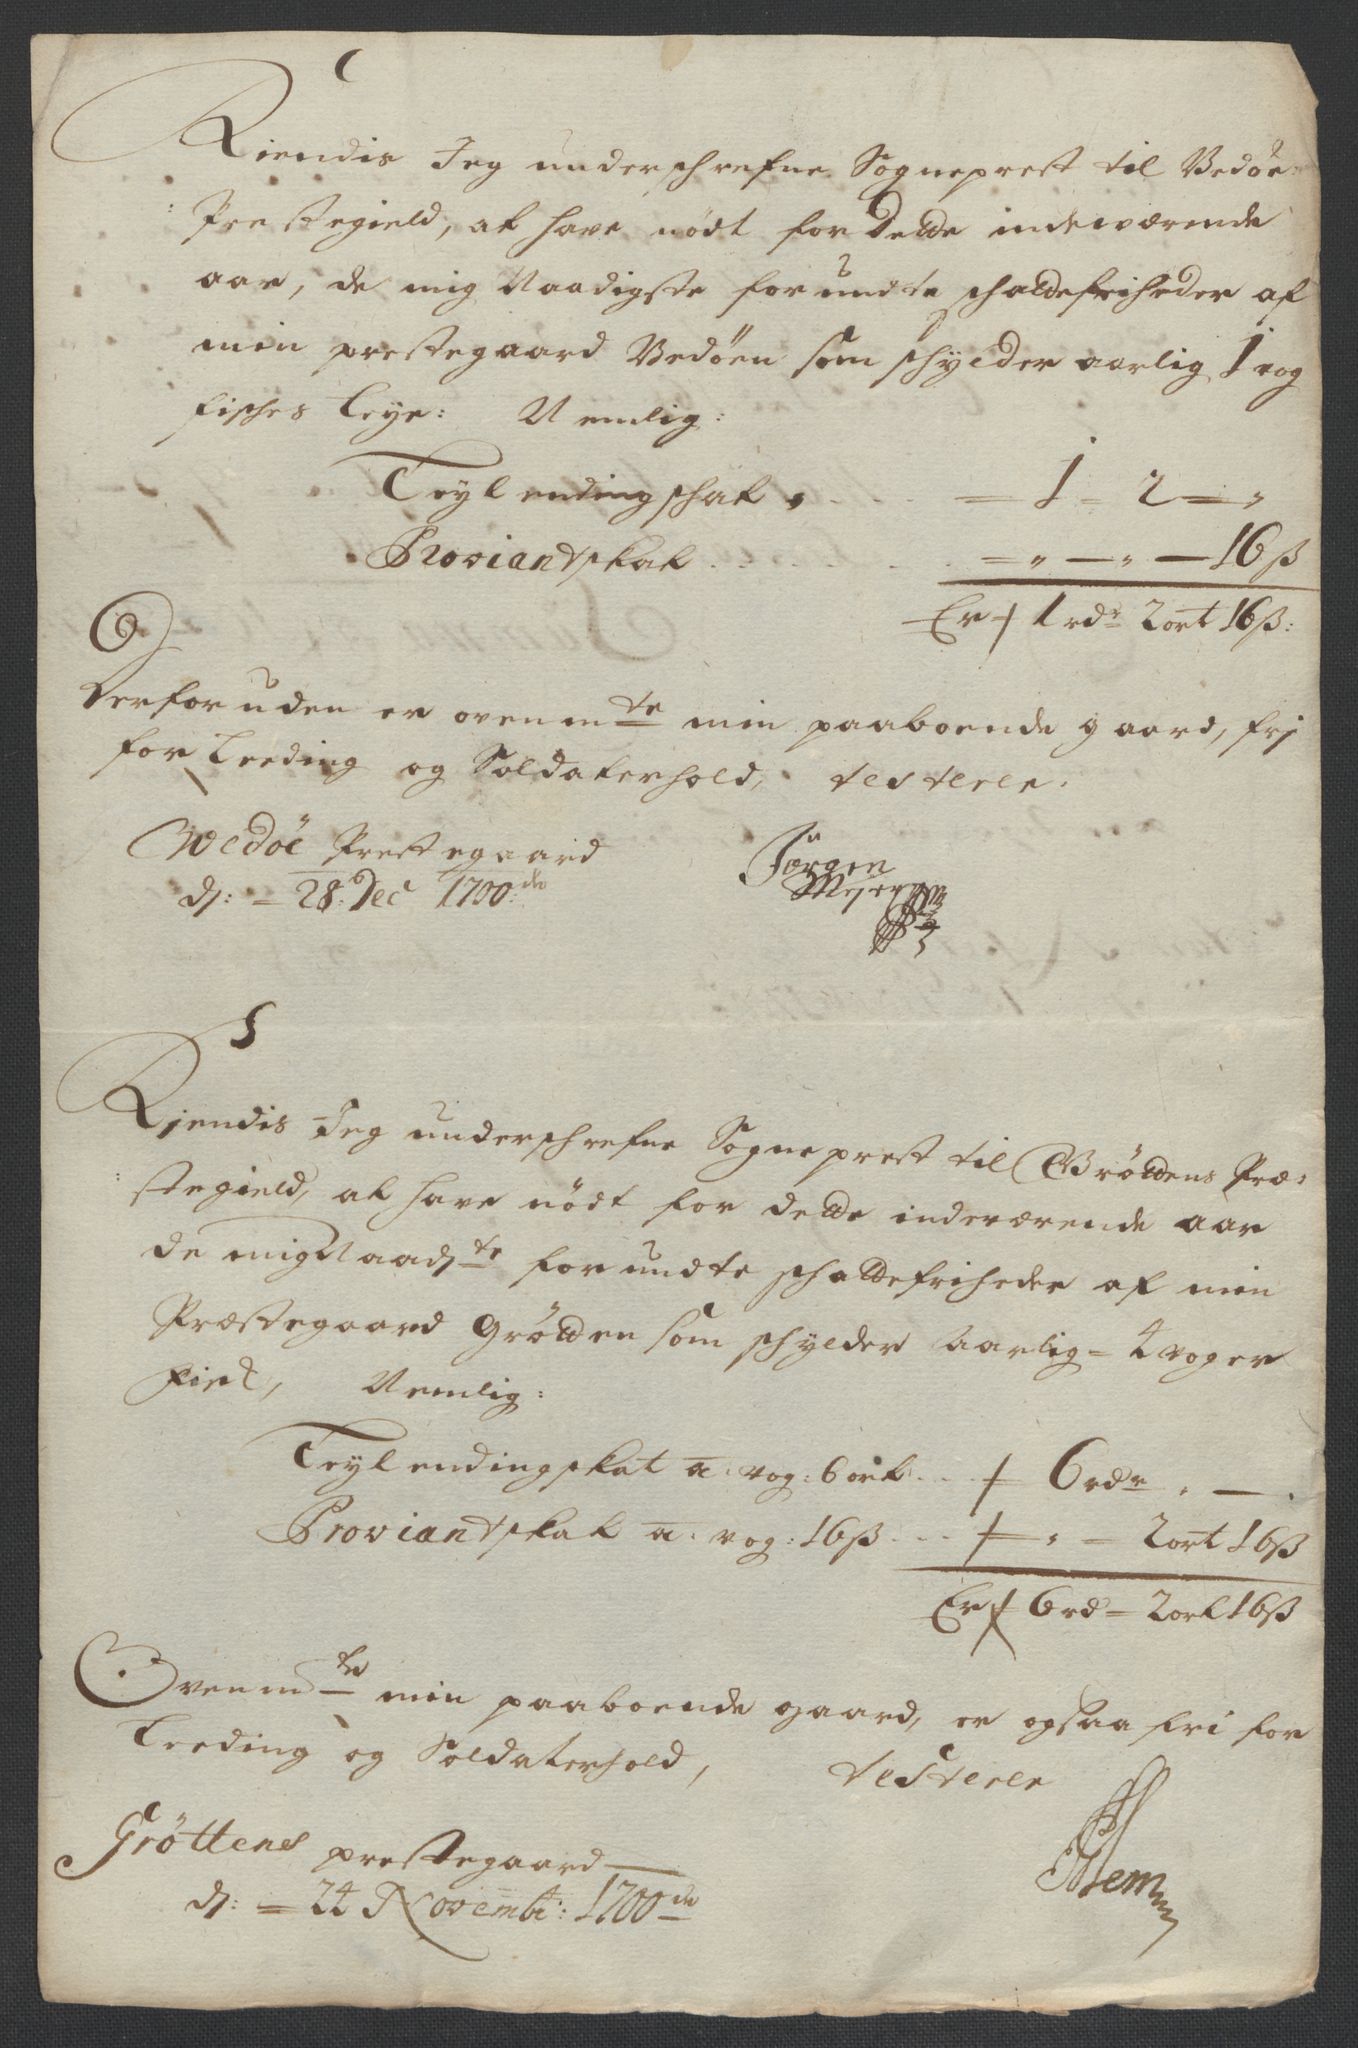 Kiendis Jeg underschrefne Sogneprest til Vedøe
Prestegield, at have nødt for Dette indewærende
aar, de mig Naadigste forundte schattefriheder af
min prestegaard Vedøen som schylder aarlig 1 vog
fisches Leye: Nemlig:
Leylendingschat = 1 = 2 = "
Proviantskat = " — " — 16 ß
Er 1 rdr 2 ort 16 ß:
Derforuden er ovenmte min paaboende gaard, frj
for Leeding og Soldaterhold, testerer.
Wedøe Prestegaard
d: = 28: Dec 1700:de
Jørgen
Mejer
Kjendis Jeg underschrefne Sogneprest til Grøttens Præ:
stegield, at have nødt for dette indeværende aar
de mig Naadste forundte schattefriheder af min
Præstegaard Grøtten som schylder aarlig = 4 voger
Fisk, Nemlig:
Leylendingskat a. vog: 6 ort 6 rdr " —
Proviantskat a. vog: 16 ß " = 2 ort 16 ß
Er 6 rd = 2 ort 16 ß
Ovenmte min paaboende gaard, er ogsaa fri for
Leeding og Soldaterhold, testerer
Grøttens prestegaard
d: = 24 Novemb: 1700de